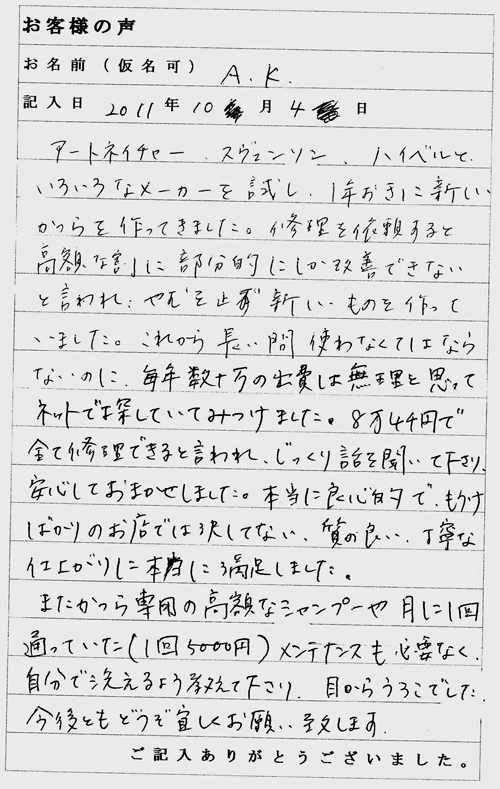 お客様の声
お名前(仮名可) A.K.
記入日 2011年10月4日
アートネイチャー、スヴェンソン、ハイベルと
いろいろなメーカーを試し、1年おきに新しい
かつらを作ってきました。修理を依頼すると
高額な割に部分的にしか改善できない
と言われ、やむを止ず新しいものを作って
いました。これから長い間使わなくてはなら
ないのに、毎年数十万の出費は無理と思って
ネットで探していてみつけました。8万4千円で
全て修理できると言われ、じっくり話を聞いて下さり、
安心しておまかせしました。本当に良心的で、もうけ
ばかりのお店では決してない、質の良い、丁寧な
仕上がりに本当に満足しました。
またかつら専用の高額なシャンプーや月に1回
通っていた(1回5000円)メンテナンスも必要なく、
自分で洗えるよう教えて下さり、目からうろこでした。
今後ともどうぞ宜しくお願い致します。
ご記入ありがとうございました。